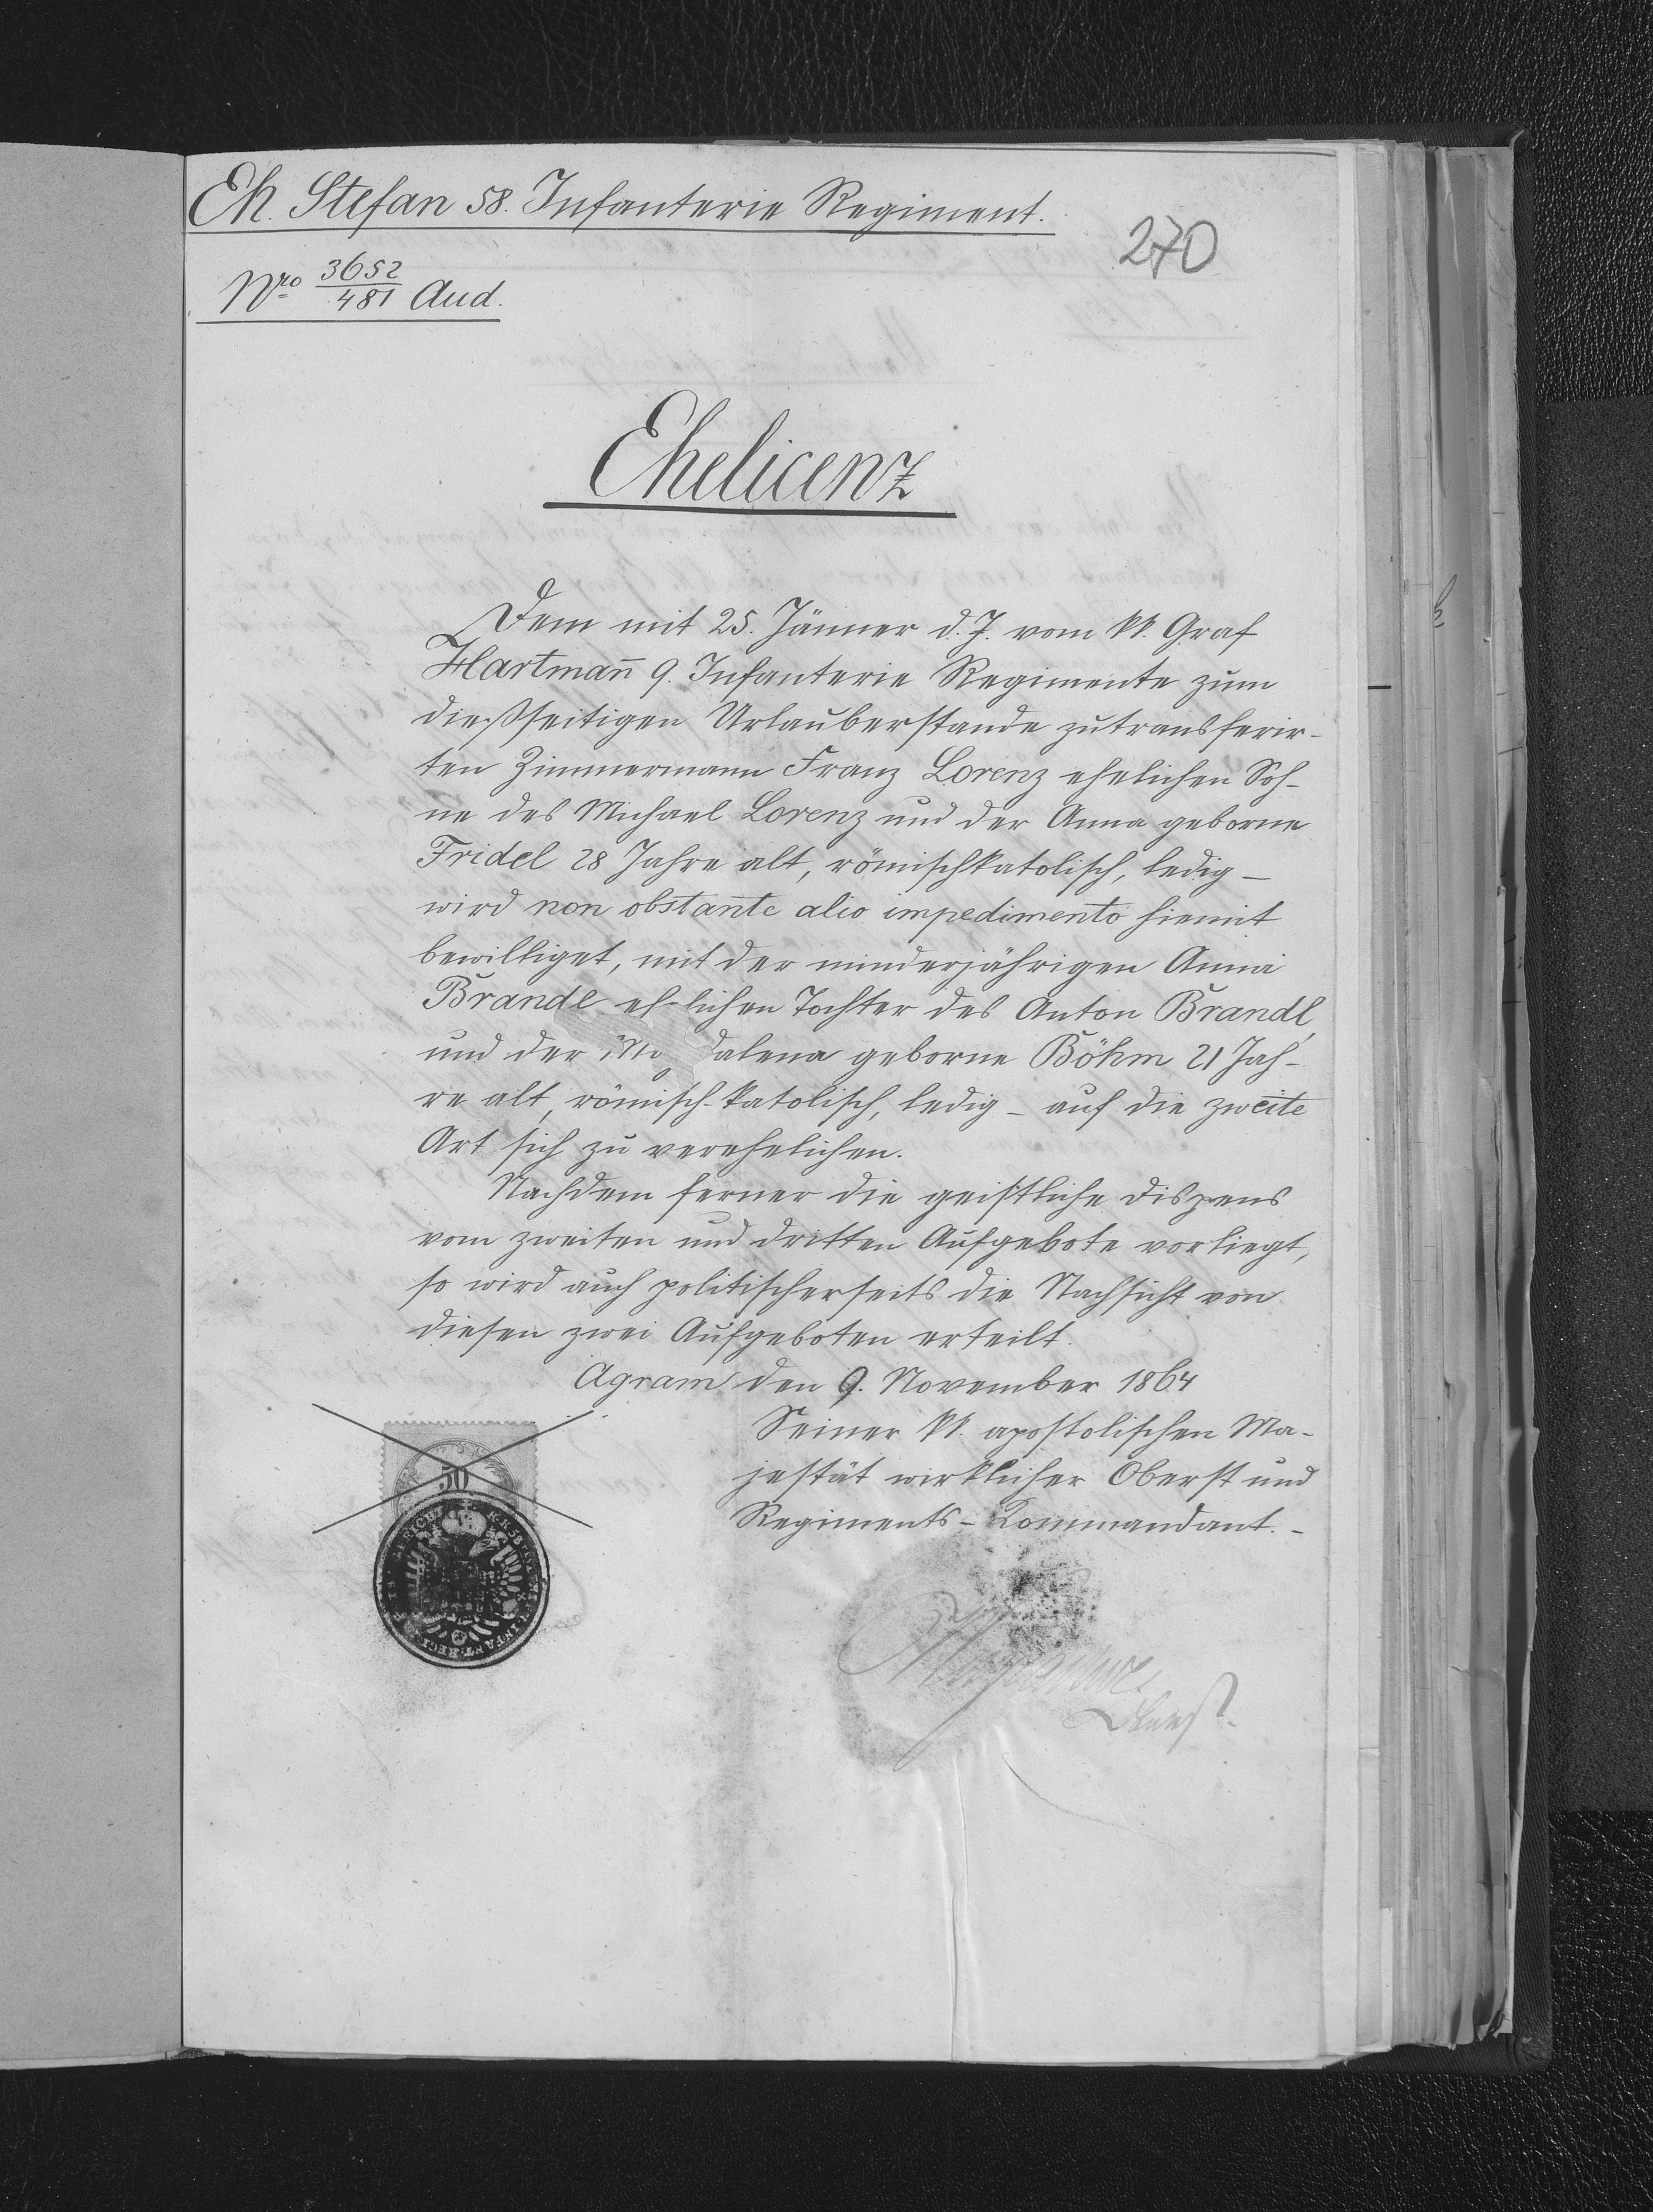 Eh. Stefan 58. Infanterie Regiment.
270
Nro 3652/481 Aud.
Ehelicenz
Dem mit 25. Jänner d. J. vom kk. Graf
Hartmañ 9. Infanterie Regimente zum
dießseitigen Urlauberstande zutransferir-
ten Zimmermann Franz Lorenz ehelichen Soh-
ne des Michael Lorenz und der Anna geborne
Fridel 28 Jahre alt, römischkatolisch, ledig –
wird non obstante alio impedimento hiemit
bewilliget, mit der minderjährigen Anna
Brandl ehelichen Tochter des Anton Brandl,
und der Magdalena geborne Böhm 21 Jah-
re alt, römisch-katolisch, ledig – auf die zweite
Art sich zu verehelichen.
Nachdem ferner die geistliche Dispens
vom zweiten und dritten Aufgebote vorliegt,
so wird auch politischerseits die Nachsicht von
diesen zwei Aufgeboten erteilt.
Agram den 9. November 1864
Seiner kk. apostolischen Ma-
jestät wirklicher Oberst und
Regiments-Kommandant. –
50
Oberst